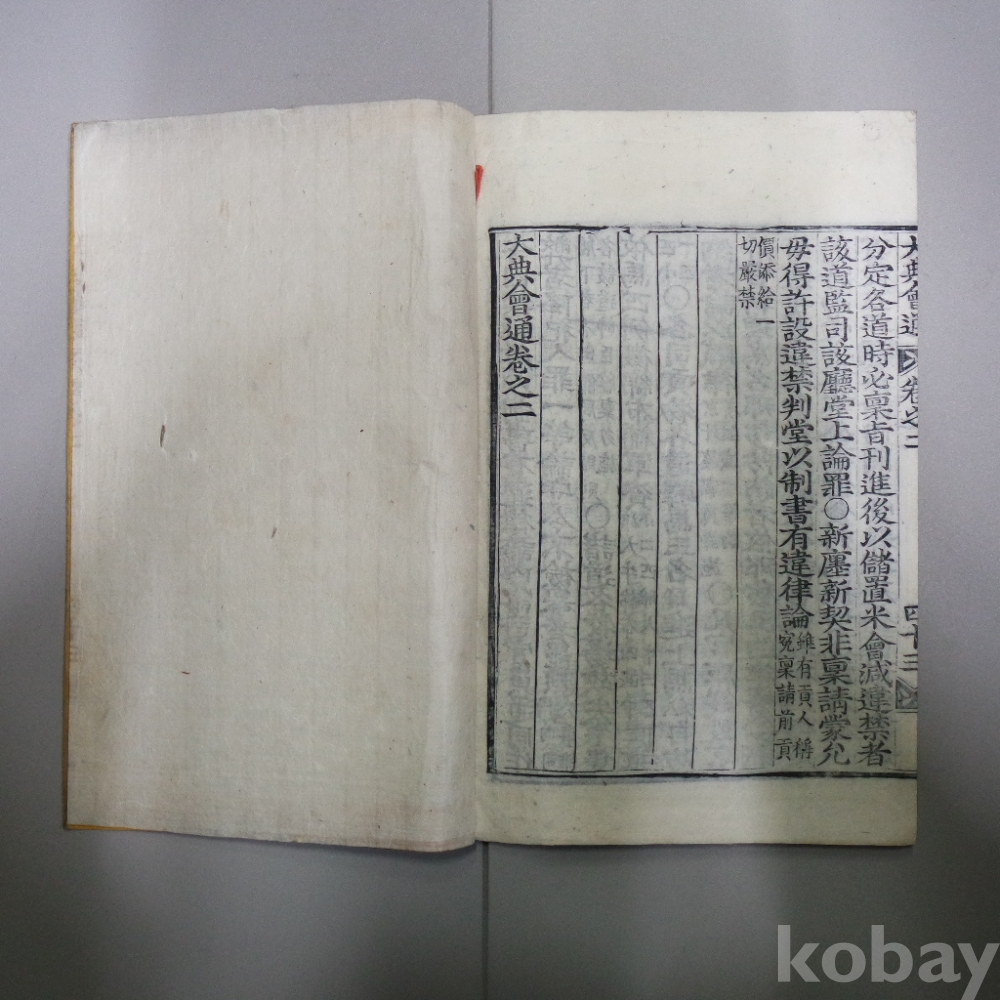 大典會通 卷之二
分定各道時必稟旨刊進後以儲置米會減違禁者
該道監司該廳堂上論罪○新廛新契非稟請蒙允
毋得許設違禁判堂以制書有違律論雖有貢人稱
寃稟請前貢
價添給一
切嚴禁
大典會通卷之二
kobay